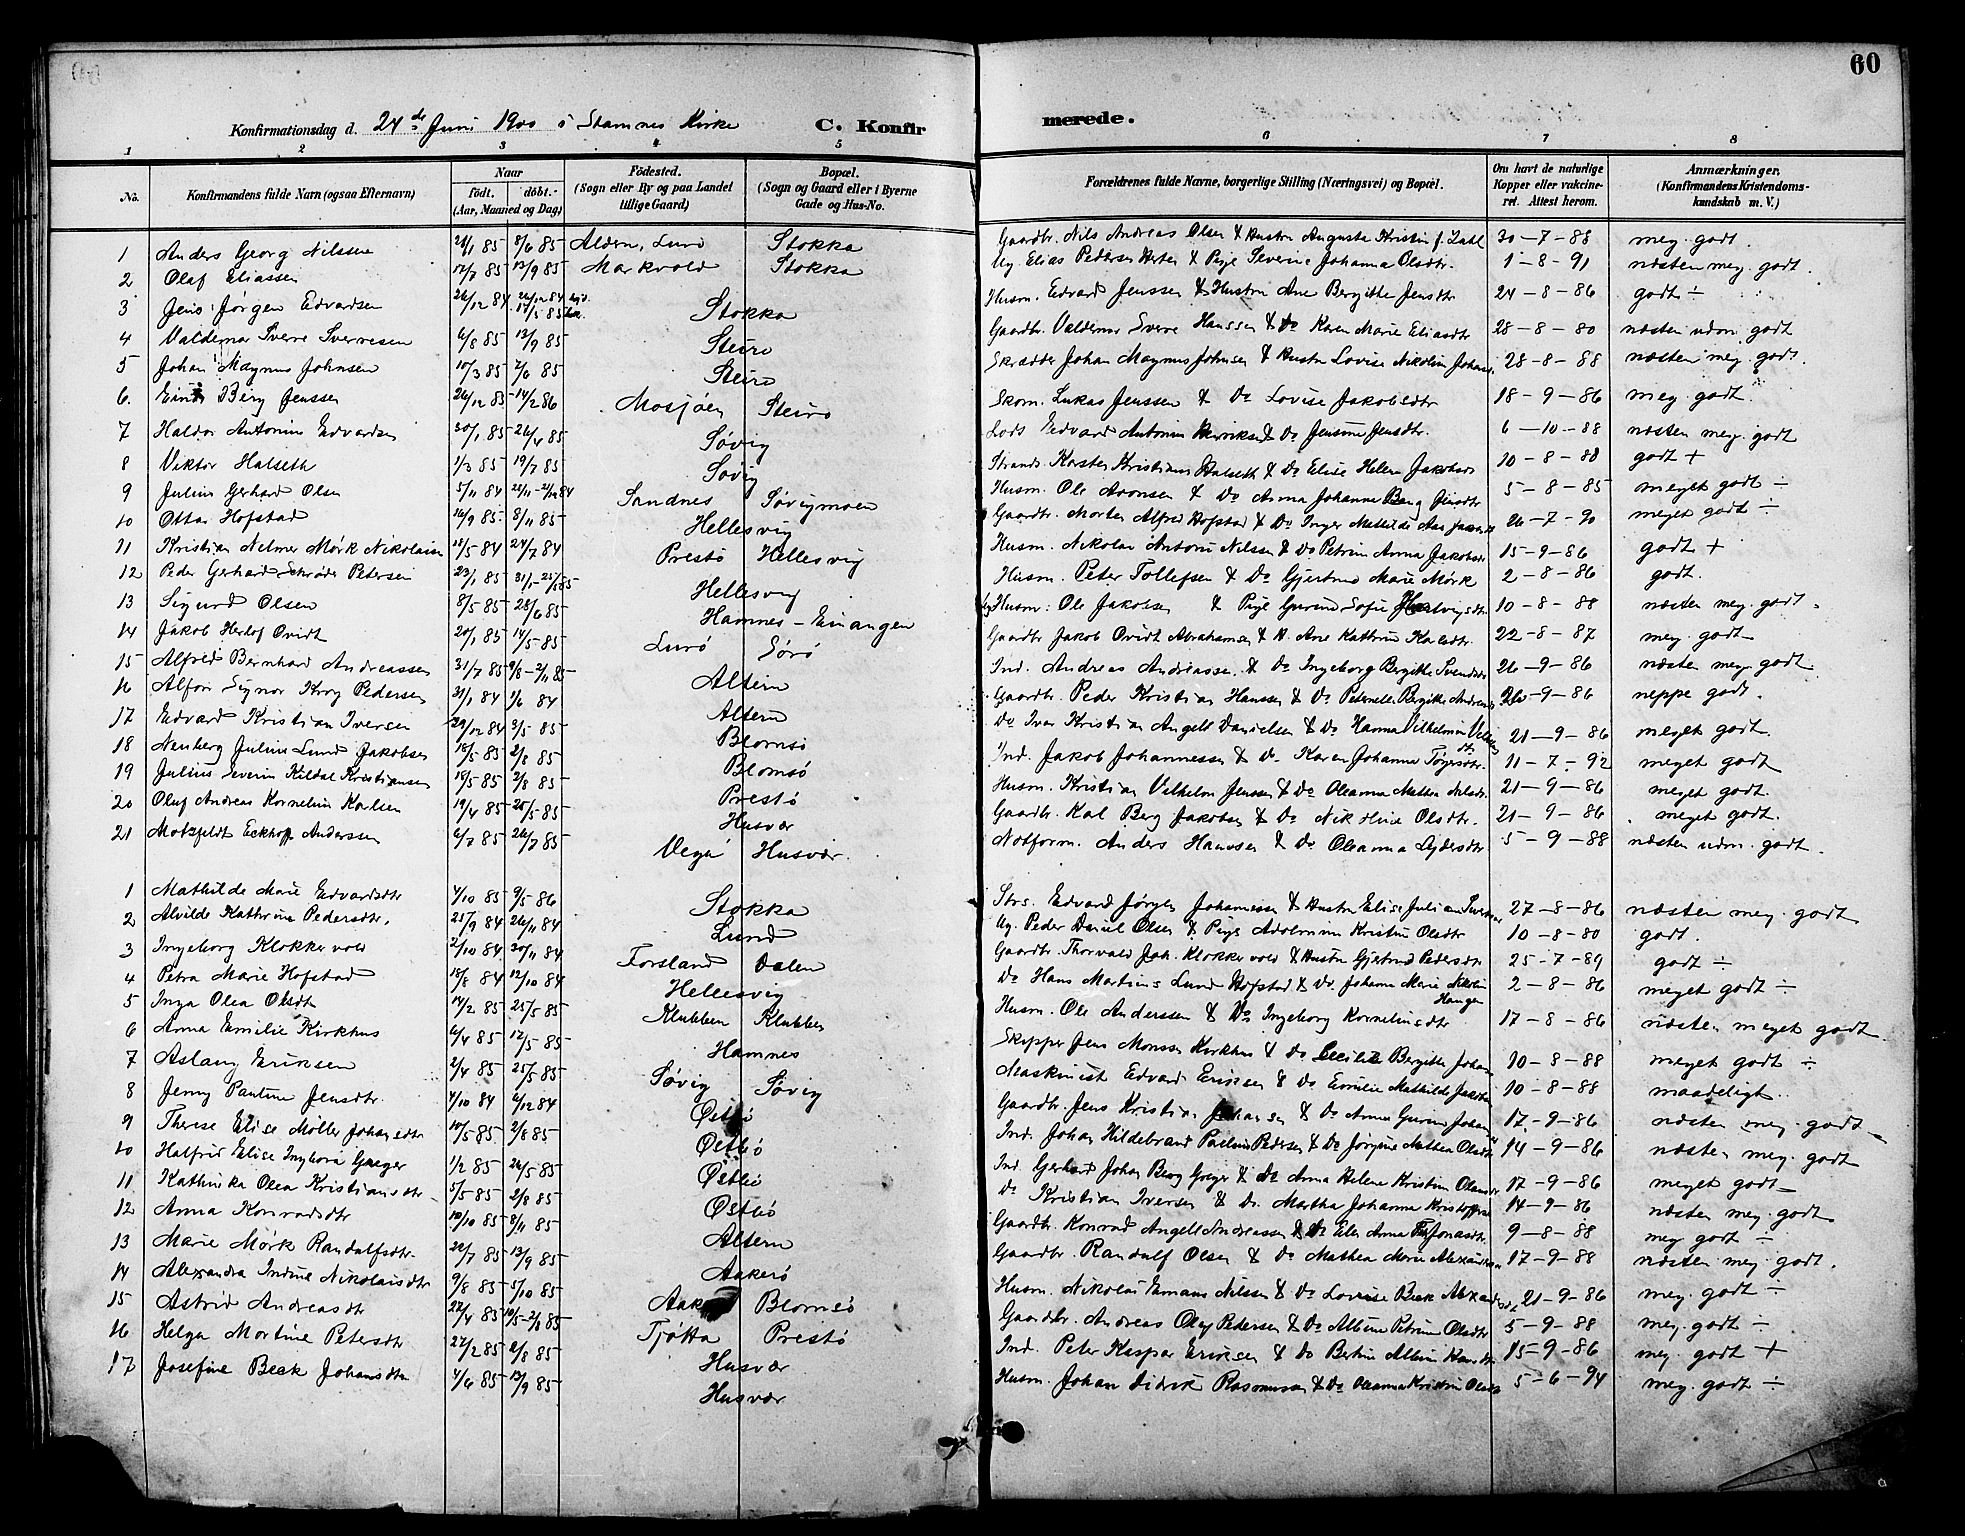 60
Konfirmationsdag d. 24de Juni 1900 i Stamnes Kirke C. Konfirmerede.
1 2 3 4 5 6 7 8
No. Konfirmandens fulde Navn (ogsaa Efternavn) Naar födt. döbt. (Aar, Maaned og Dag) Födested. (Sogn eller By og paa Landet tillige Gaard) Bopæl. (Sogn og Gaard eller i Byerne Gade og Hus-No. Forældrenes fulde Navne, borgerlige Stilling (Næringsvei) og Bopæl. Om havt de naturlige Kopper eller vakcineret. Attest herom. Anmærkninger. (Konfirmandens Kristendomskundskab m. V.)
1 Anders Georg Nilssen 85 8/6 85 Altern, Lurö Stokka Gaardbr. Nils Andreas Olsen & Hustru Augusta Kristin f. Zahl 30-7-88 meg. godt.
2 Olaf Eliassen 12/7 85 13/9 85 Markvold Stokka Ug. Elias Pedersen & Pige Severine Johanna Olsdtr. 1-8-91 næsten meg. godt.
3 Jens Jørgen Edvardsen 26/12 84 Stokka Husm. Edvard Jenssen & Hustru Ane Bergitte Jensdtr 24-8-86 godt ÷
4 Valdemar Sverre Sverresen 6/8 85 13/9 85 Steiro Gaardbr. Valdemar Sverre Hanssen & Do Karen Marie Eliasdtr 28-8-80 næsten udm. godt
5 Johan Magnus Johnsen 10/3 85 7/6 85 Steiro Skrædder Johan Magnus Johnsen & Hustru Lovise Nikoline 28-8-88 næsten meg. godt.
6. Berg Jenssen 26/12 85 14/2 86 Mosjøen Steiro Skom. Lukas Jenssen & Do Lovise Jakobsdtr 18-9-86 meg. godt.
7 Haldor Antonius Edvardsen 30/1 85 26/4 85 Søvig Lods Edvard Antonius Henriksen & Do Jensine Jensdtr. 6-10-88 næsten meg. godt
8 Viktor Halseth 1/3 85 19/7 85 Søvig Strands. Karsten Kristian Halseth & Do Elise Helene Jakobsdr 10-8-88 godt +
9 Julius Gerhard Olsen 5/11 84 Sandnes Søvigmoen Husm. Ole Aronsen & Do Anna Johanne Berg Jensdtr 5-8-85 meget godt ÷
10 Ottar Hofstad 16/9 85 8/11 85 Hellesvig Gaardbr. Morten Alfred Hofstad & Do Inger Mathilde Aas 26-7-90 meget godt ÷
11 Kristian Nelmer Mørk Nikolaisen 18/5 84 24/7 84 Prestö Hellesvig Husm. Nikolai Antoni Nilssen & Do Petrine Anna Jakobsdr 15-9-86 godt +
12 Peder Gerhard Schrøder Petersen 23/1 85 Hellesvig Husm. Peter Tollefsen & Do Gjertrud Marie Mørk 2-8-86 godt.
13 Sigurd Olsen 8/5 85 28/6 85 Hamnes - Einangen Husm: Ole Jakobsen & Pige Gurine Sofie Hartvigsdtr 10-8-88 næsten meg. godt.
14 Jakob Herlof Qvidt 20/1 85 14/5 85 Lurö Sörö Gaardbr Jakob Qvidt Abrahamsen & H. Ane Kathrine Karlsdtr. 22-8-87 meg. godt
15 Alfred Bernhard Andreassen 31/7 85 9/8 - 2/11 85 Altern Ind. Andreas Andreassen & Do Ingeborg Bergitte Svendsdr 26-9-86 næsten meg. godt
16 Alfon Signor Krog Pedersen 31/1 84 1/6 84 Altern Gaardbr. Peder Kristian Hanssen & Do Peternelle Bergitte 26-9-86 neppe godt.
17 Edvard Kristian Iversen 29/12 84 3/5 85 Blomsö Do Iver Kristian Angell Danielsen & Do Hanna Vilhelmine 21-9-86 meget godt
18 Nenberg Julius Lund Jakobsen 18/5 85 2/8 85 Blomsö Ind. Jakob Johannessen & Do. Karen Johanna 11-7-92 meget godt
19 Julius Severin Kildal Kristiansen 18/5 85 2/8 85 Prestö Husm. Kristian Vilhelm Jenssen & Do Oleanna Mathea Nilsdr. 21-9-86 meget godt.
20 Oluf Andreas Kornelius Karlsen 19/4 85 25/5 85 Husvær Gaardbr. Kal Berg Jakobsen & Do Nikoline Olsdtr. 21-9-86 meget godt.
21 Motzfeldt Eckhoff Andersen 6/7 85 26/7 85 Vega Husvær. Notform. Anders Hanssen & Do Oleanna Lydersdtr 5-9-88 næsten udm. godt.
1 Mathilde Marie Edvardsdtr 4/10 85 9/5 86 Stokka Strs. Edvard Jørgen Johannessen & Hustru Elise Juliane 27-8-86 næsten meg. godt
2 Alvilde Kathrine Pedersdtr. 25/9 84 26/11 84 Lund Ug. Peder Daniel Olsen & Pige Adolmine Kristine Olsdtr 10-8-80 godt.
3 Ingeborg Klokkervold 2/10 84 30/11 84 Forsland Dalen Gaardbr. Thorvald Joh. Klokkervold & Hustru Gjertrud Pedersdtr 25-7-89 godt ÷
4 Petra Marie Hofstad 18/8 84 12/10 84 Hellesvig Do Hans Martinus Lund Hofstad & Do. Johanna Marie Haugen 2-8-86 meget godt ÷
5 Inga Olea Olsdtr 14/2 85 25/5 85 Klubben Klubben Husm. Ole Anderssen & Do Ingeborg Korneliusdtr 17-8-86 næsten meget godt.
6 Anna Emilie Kirkhus 6/4 85 12/5 85 Hamnes Skipper Jens Monssen Kirkhus & Do Cecilie Bergitte 10-8-88 meget godt ÷
7 Aslaug Eriksen 2/4 85 25/5 85 Søvig Søvig Maskinist Edvard Eriksen & Do Emilie Mathilde 10-8-88 maadeligt.
8 Jenny Pauline Jensdtr. 4/10 84 6/12 84 Østbö Gaardbr. Jens Kristian Johansen & Do Anna Gurine 17-9-86 næsten meg. godt
9 Therese Elise Möller Johansdtr 10/5 85 2/8 85 Østbö Ind. Johan Hildebrand Paulin Pedersen & Do Jørgine Mathea Olsdtr 14-9-86 næsten meg. godt
10 Halfrid Elise Ingbora Greger 1/2 85 26/5 85 Østbö Ind. Gerhard Johan Berg Greger & Do Anna Helene Kristine 17-9-86 meget godt
11 Kathinka Olea Kristiansdtr 5/5 85 2/8 85 Østbö Do Kristian Iversen & Do. Martha Johanna 14-9-86 næsten meg. godt
12 Anna Konradsdtr 10/10 85 8/11 85 Altern Gaardbr. Konrad Angell Andreassen & Do Elen Anna Jonasdtr. 9-8-88 meg godt ÷
13 Marie Mørk Randulfsdtr. 22/7 85 13/9 85 Aakerö Gaardbr. Randulf Olsen & Do Mathea Marie 17-9-88 næsten meg. godt.
14 Alexandra Indine Nikolaisdtr 9/8 85 5/10 85 Aak Blomsö Husm. Nikolai Emanus Nilssen & Do Lovise Beck 21-9-86 meg. godt ÷
15 Astrid Andreasdtr 27/4 85 Tjøtta Prestö Gaardbr. Andreas Olaj Pedersen & Do Albine Petrine Olsdtr 5-9-88 meg. godt ÷
16 Helga Martine Petersdtr 27/2 85 2/8 85 Husvær Ind. Peter Kaspar Eriksen & Do Bertine Albine 15-9-86 meg. godt +
17 Josefine Beck Johansdtr 4/6 85 13/9 85 Husvær Husm. Johan Didrik Rasmussen & Do Oleanna Kristine 5-6-94 meg. godt ÷